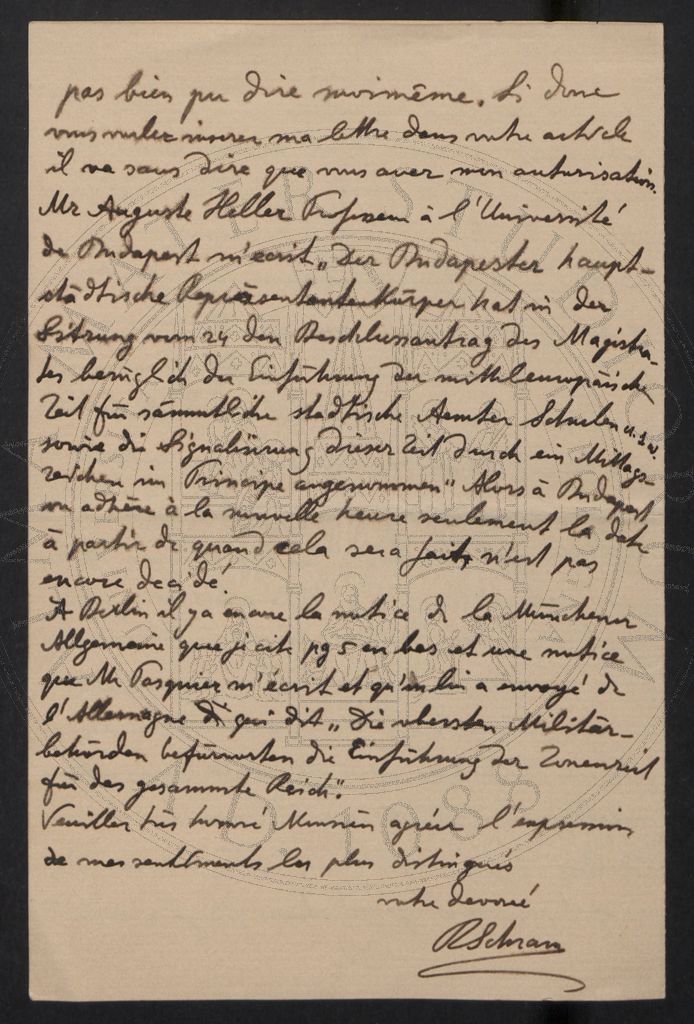 pas bien pu dire moimême. Si donc
vous voulez inserer ma lettre dans votre article
il va sans dire que vous avez mon autorisation.
Mr Auguste Heller Professeur à l'Université
de Budapest m'écrit „Der Budapester haupt-
städtische Repräsentantenkörper hat in der
Sitzung vom 24 den Beschlussantrag des Magistra-
tes bezüglich der Einführung der mitteleuropäischen
Zeit für sämmtliche stadtische Aemter Schulen u.s.w.
sowie die Signalisirung dieser Zeit durch ein Mittags-
zeichen im Principe angenommen" Alors à Budapest
on adhère à la nouvelle heure seulement la date
à partir de quand cela sera fait n'est pas
encore decidé.
A Berlin il y a encore la notice de la Münchener
Allgemeine que je cite pg 5 en bas et une notice
que Mr Pasquier m'écrit et qu'on lui a envoyé de
l'Allemagne qui dit „Die obersten Militär-
behörden befürworten die Einführung der Zonenzeit
für das gesammte Reich".
Veuillez très honoré Monsieur agréer l'expression
de mes sentiments les plus distingués
votre devoué
R Schram